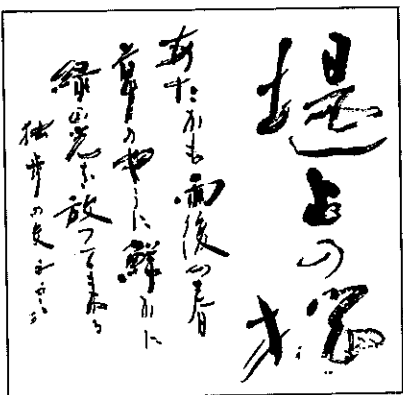 堤上の
あたかも雨後の春
草のやうに鮮かに
緑の光を放つて来る
独歩の文